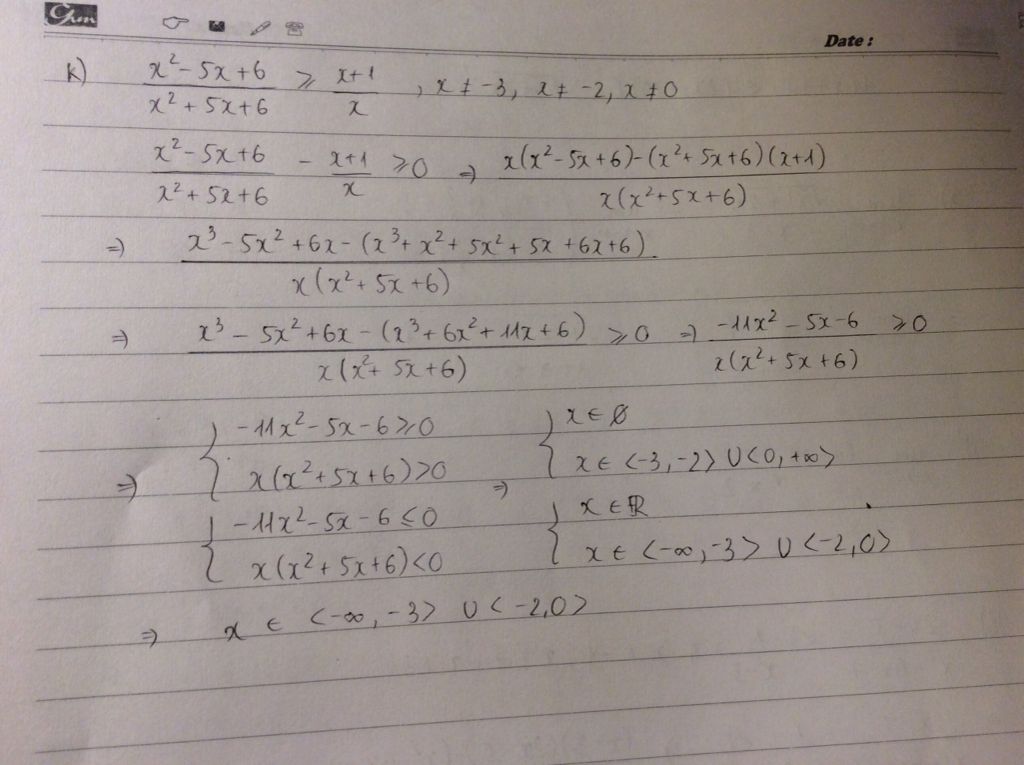 Date :
k) \frac{x^2-5x+6}{x^2+5x+6} ⩾ \frac{x+1}{x} , x ≠ -3, x ≠ -2, x ≠ 0
\frac{x^2-5x+6}{x^2+5x+6} - \frac{x+1}{x} ⩾ 0 ⇒ \frac{x(x^2-5x+6)-(x^2+5x+6)(x+1)}{x(x^2+5x+6)}
⇒ \frac{x^3-5x^2+6x-(x^3+x^2+5x^2+5x+6x+6)}{x(x^2+5x+6)}
⇒ \frac{x^3-5x^2+6x-(x^3+6x^2+11x+6)}{x(x^2+5x+6)} ⩾ 0 ⇒ \frac{-11x^2-5x-6}{x(x^2+5x+6)} ⩾ 0
-11x^2-5x-6 ⩾ 0 x ∈ ∅
⇒ { x(x^2+5x+6) > 0 ⇒ { x ∈ <-3,-2> ∪ <0,+∞>
-11x^2-5x-6 ⩽ 0 x ∈ ℝ
{ x(x^2+5x+6) < 0 { x ∈ <-∞,-3> ∪ <-2,0>
⇒ x ∈ <-∞,-3> ∪ <-2,0>